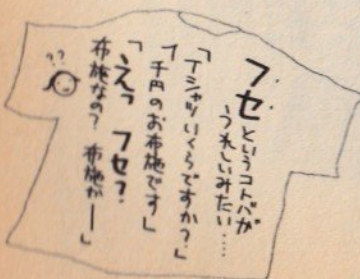 フセというコトバが
うれしいみたい……
「Tシャツいくらですか?」
「千円のお布施です」
「えっ フセ?
布施なの? 布施かー」
??